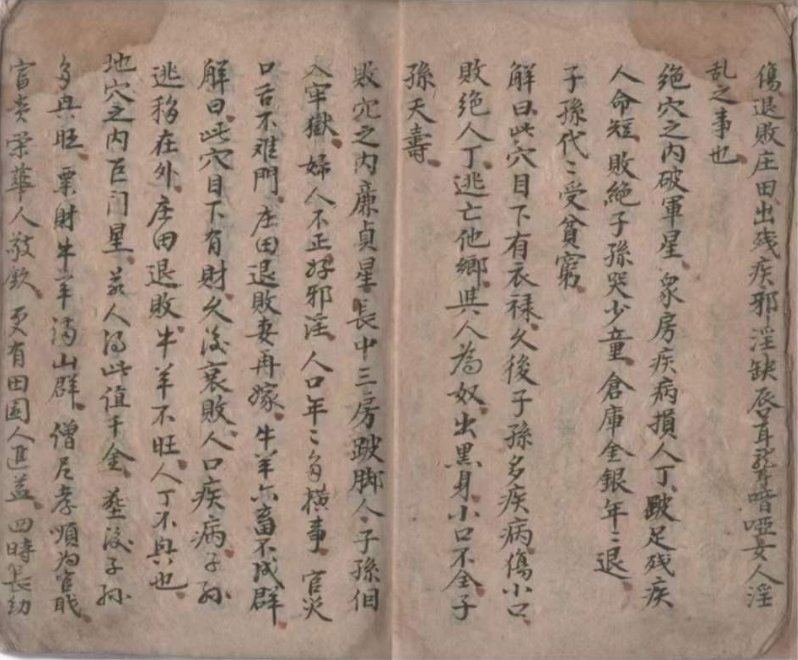 傷退敗庄田出残疾邪淫缺唇耳聾喑啞女人淫
乱之事也
絕穴之内破軍星衆房疾病損人丁跛足残疾
人命短敗絕子孫哭少童倉庫金銀年〻退
子孫代〻受貧窮
解曰此穴目下有衣禄久後子孫多疾病傷小口
敗絕人丁逃亡他鄉與人為奴出黑身小口不全子
孫夭壽
敗穴之内廉貞星長中三房跛脚人子孫徊
入牢獄婦人不正好邪淫人口年〻多橫事官災
口舌不难門庄田退敗妻再嫁牛羊六畜不成群
解曰此穴目下有財久後衰敗人口疾病子孙
逃移在外庄田退敗牛羊不旺人丁不興也
地穴之内巨门星若人得此值千金塟後子孙
多興旺粟財牛羊满山群僧尼孝順为官职
富贵荣華人敬欽更有田园人进益四時長幼